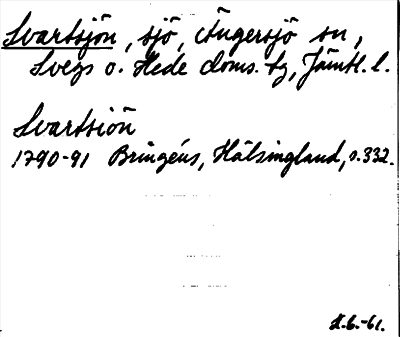 Svartsjön, sjö, Ängersjö sn,
Svegs o. Hede doms. tg, Jämtl. l.
Svartsiön
1790-91 Bringéus, Hälsingland, s. 332.
-61.